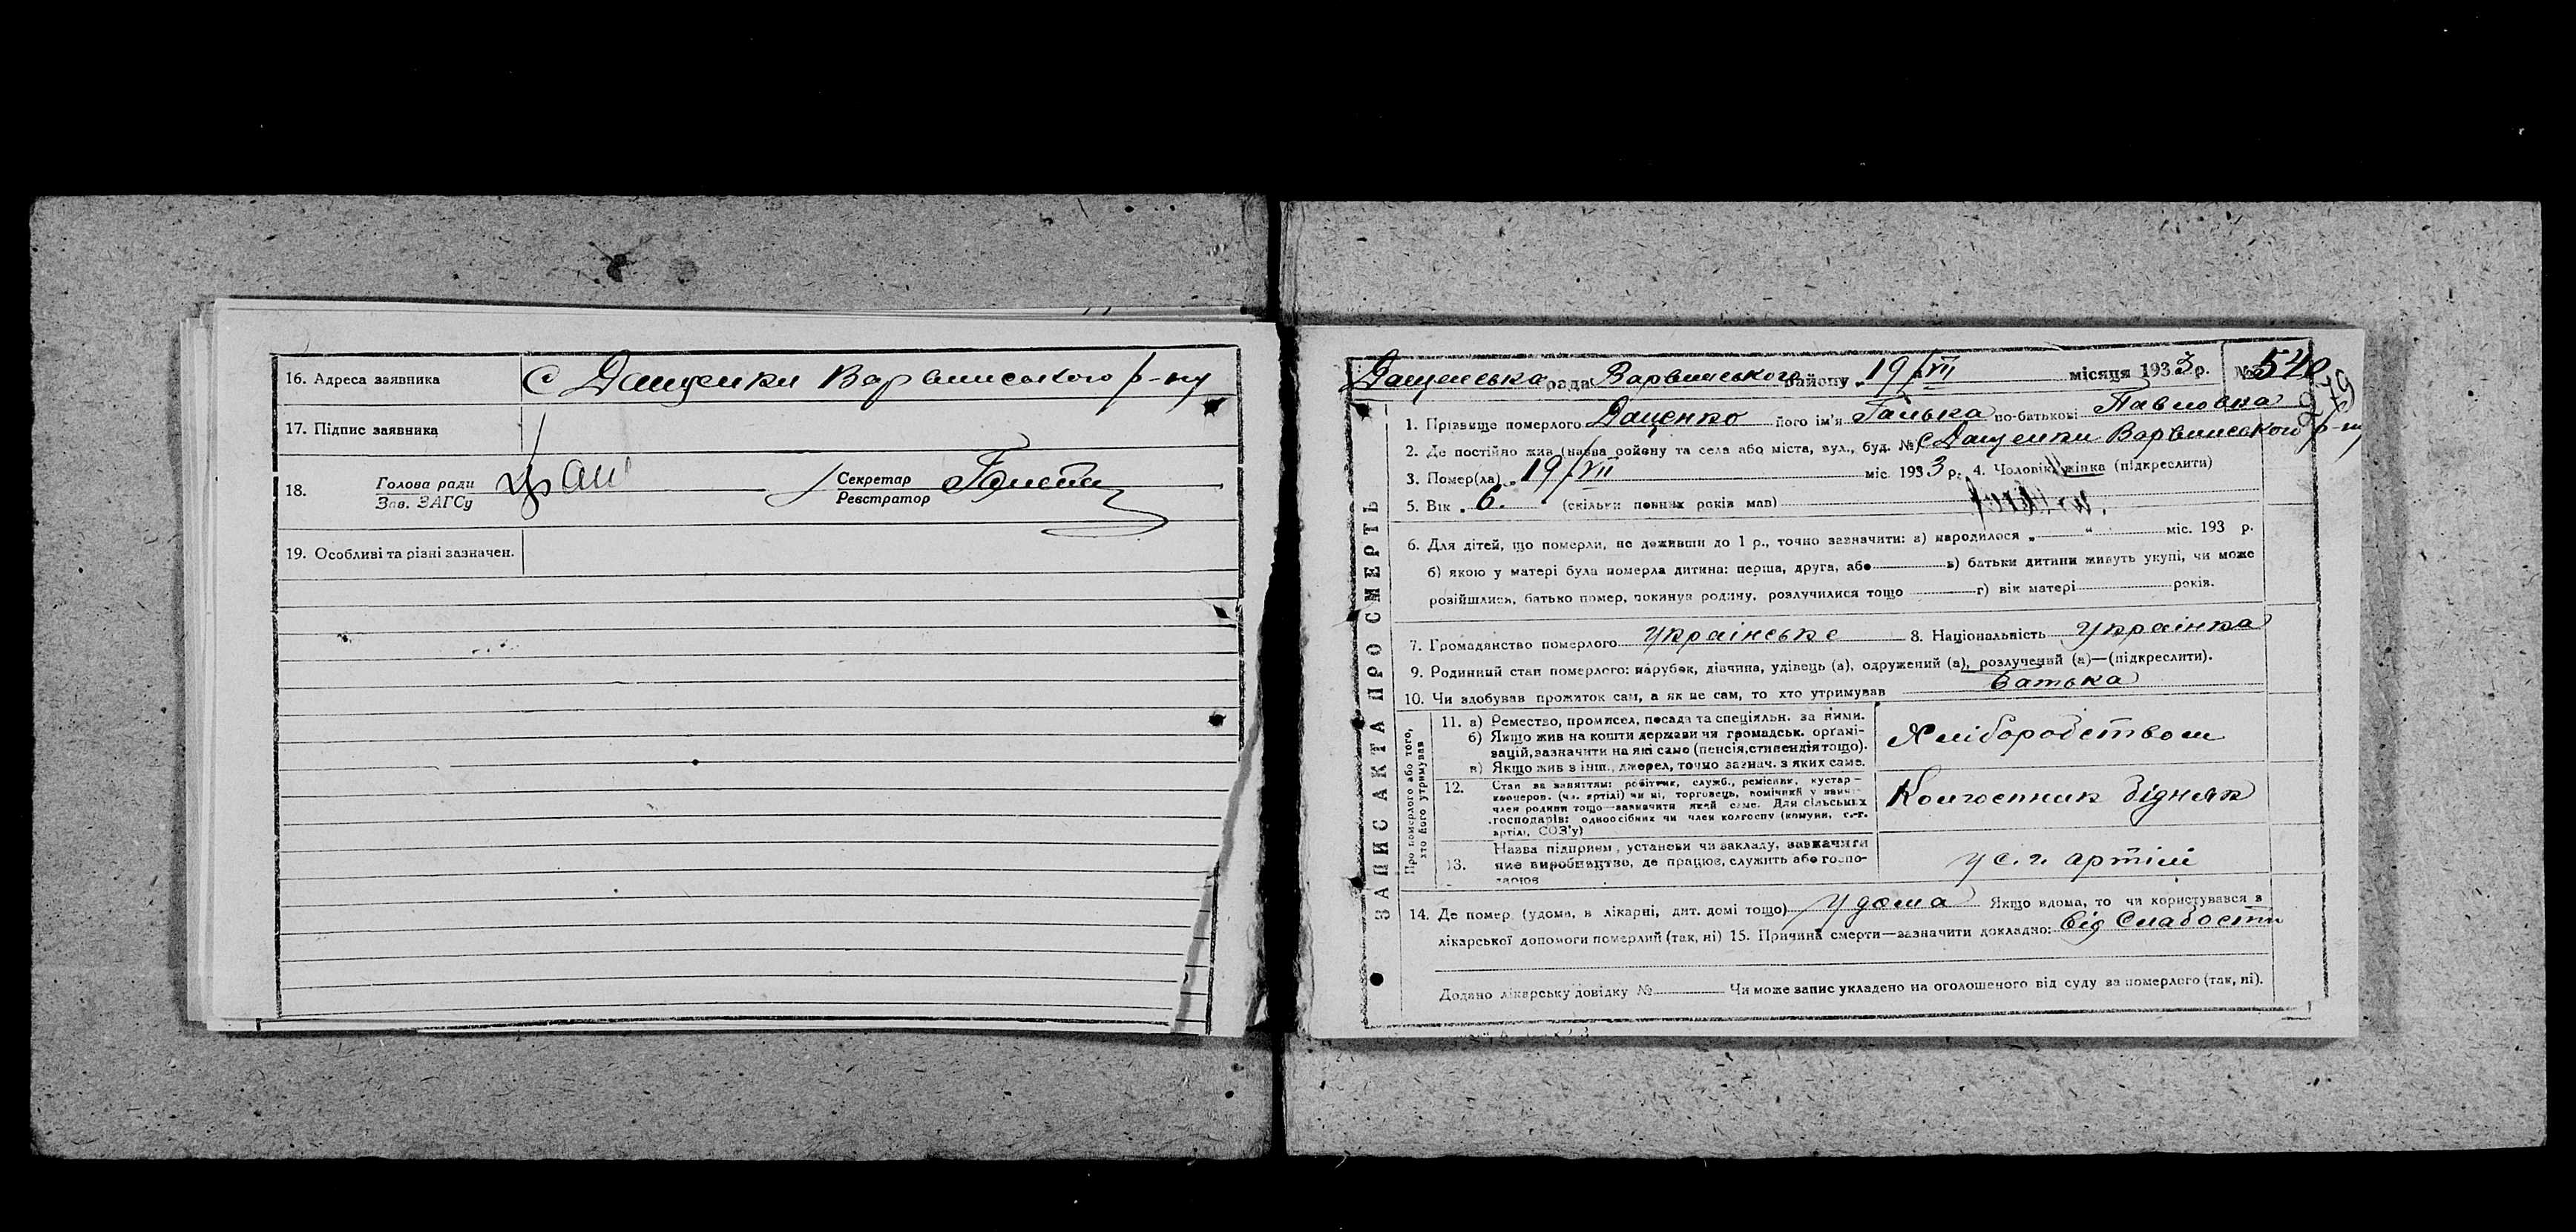 16. Адреса заявника с Дащенки Варвинського р-ну
17. Підпис заявника
18. Голова ради
Зав. ЗАГСу
Секретар
Реєстратор
19. Особливі та різні зазначен.
ЗАПИС АКТА ПРО СМЕРТЬ
Дащенська рада Варвинського району 19/VII місяця 1933 р. № 540
279
1. Прізвище померлого Даценко його ім'я Галька по-батькові Павловна
2. Де постійно жив (назва району та села або міста, вул., буд. №) с Дащенки Варвинского р-ну
3. Помер(ла) „ 19/VII міс. 1933 р. 4. Чоловік, жінка (підкреслити)
5. Вік . 6. (скільки повних років мав)
6. Для дітей, що померли, не доживши до 1 р., точно зазначити: а) народилося „ “ міс. 193 р.
б) якою у матері була померла дитина: перша, друга, або в) батьки дитини живуть укупі, чи може
розійшлися, батько помер, покинув родину, розлучилися тощо г) вік матері років.
7. Громадянство померлого українське 8. Національність українка
9. Родинний стан померлого: парубок, дівчина, удівець (а), одружений (а), розлучений (а)—(підкреслити).
10. Чи здобував прожиток сам, а як не сам, то хто утримував батька
Про померлого або того,
хто його утримував
11. а) Ремество, промисел, посада та спеціяльн. за ними.
б) Якщо жив на кошти держави чи громадськ. органі-
зацій, зазначити на які саме (пенсія, стипендія тощо).
в) Якщо жив з інш. джерел, точно зазнач. з яких саме.
Хліборобством
12. Стан за заняттям: робітник, служб., ремісник, кустар-
кооперов. (чл. артілі) чи ні, торговець, помічний у
член родини тощо—зазначити який саме. Для сільських
господарів: одноосібник чи член колгоспу (комуни, с.-г.
артілі, СОЗ'у)
Колгоспник бідняк
13. Назва підприєм., установи чи закладу, зазначити
яке виробництво, де працює, служить або госпо-
дарює
у с. г. артілі
14. Де помер (удома, в лікарні, дит. домі тощо) у дома Якщо вдома, то чи користувався з
лікарської допомоги померлий (так, ні) 15. Причина смерти—зазначити докладно: від Слабости
Додано лікарську довідку № Чи може запис укладено на оголошеного від суду за померлого (так, ні).